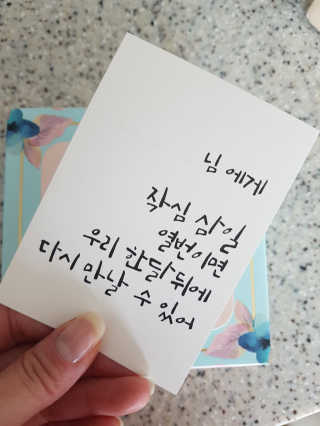 님에게
작심 삼일
열번이면
우리 한달 뒤에
다시 만날 수 있어